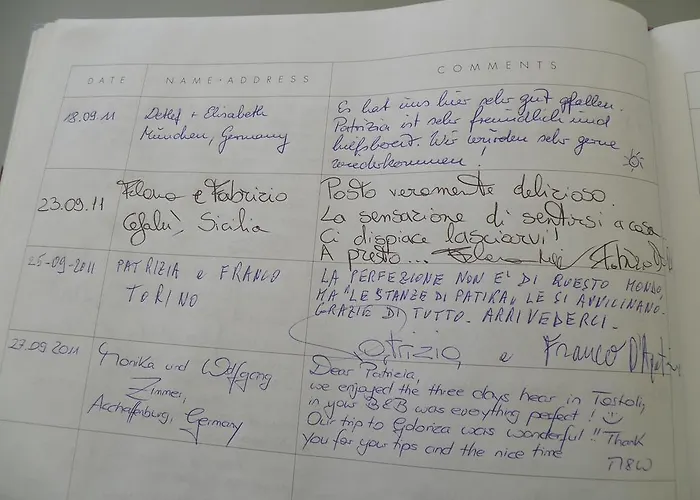 DATE NAME·ADDRESS COMMENTS
18.09.11
Detlef + Elisabeth
München, Germany
Es hat uns hier sehr gut gfallen.
Patrizia ist sehr freundlich und
hilfsbereit. Wir würden sehr gerne
wiederkommen!
23.09.11
Elena e Fabrizio
Cefalù, Sicilia
Posto veramente delizioso.
La sensazione di sentirsi a casa
Ci dispiace lasciarvi!
A presto...
25-09-2011
PATRIZIA e FRANCO
TORINO
LA PERFEZIONE NON E' DI QUESTO MONDO,
MA "LE STANZE DI PATIRA" LE SI AVVICINANO.
GRAZIE DI TUTTO. ARRIVEDERCI.
Patrizia e Franco
27.09.2011
Monika und Wolfgang
Zimmer,
Aschaffenburg, Germany
Dear Patrizia,
we enjoyed the three days hear in Toskoli,
in your B&B was everything perfect! ☺
Our trip to Goloriza was wonderful!! Thank
you for your tips and the nice time
M&W